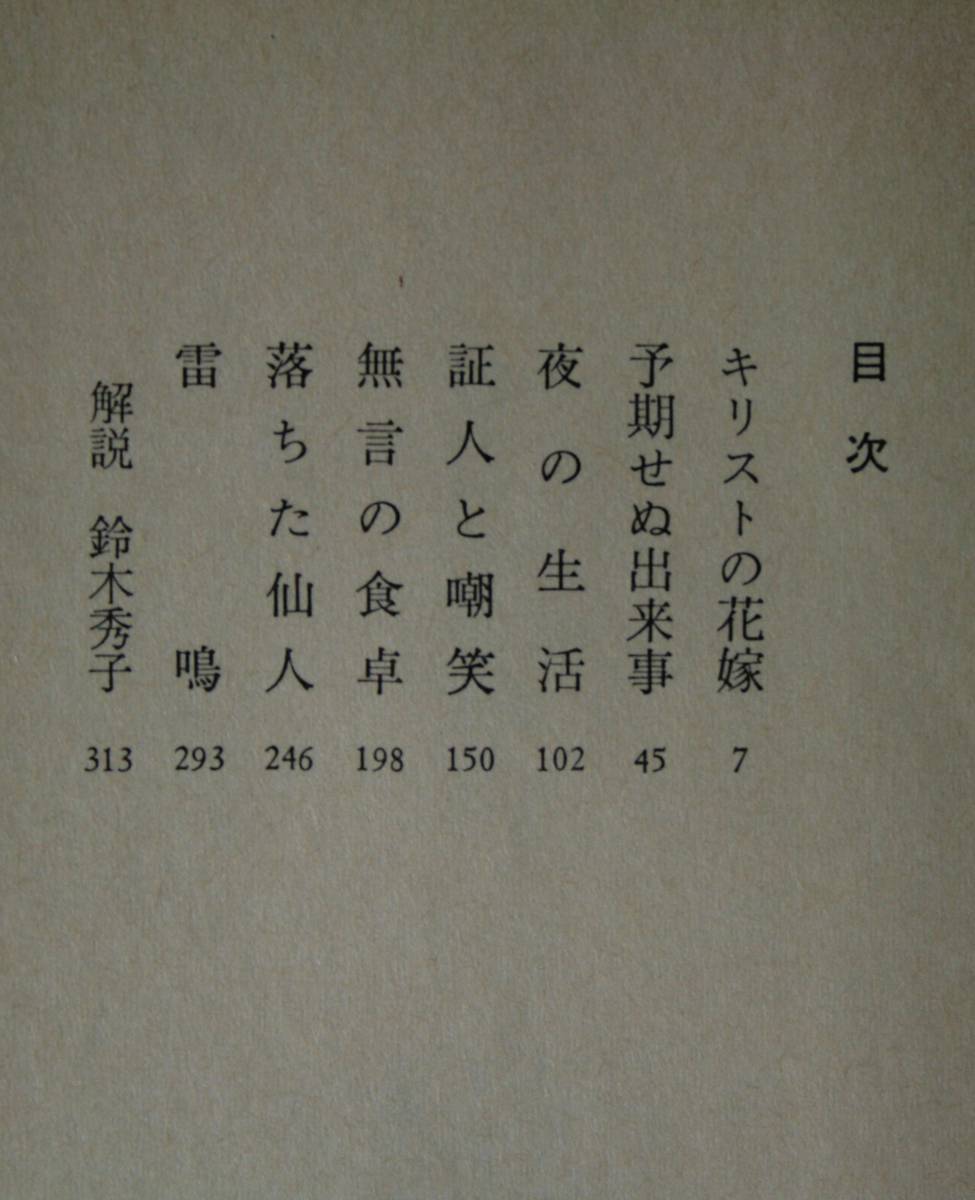 目次
キリストの花嫁 7
予期せぬ出来事 45
夜の生活 102
証人と嘲笑 150
無言の食卓 198
落ちた仙人 246
雷鳴 293
解説 鈴木秀子 313